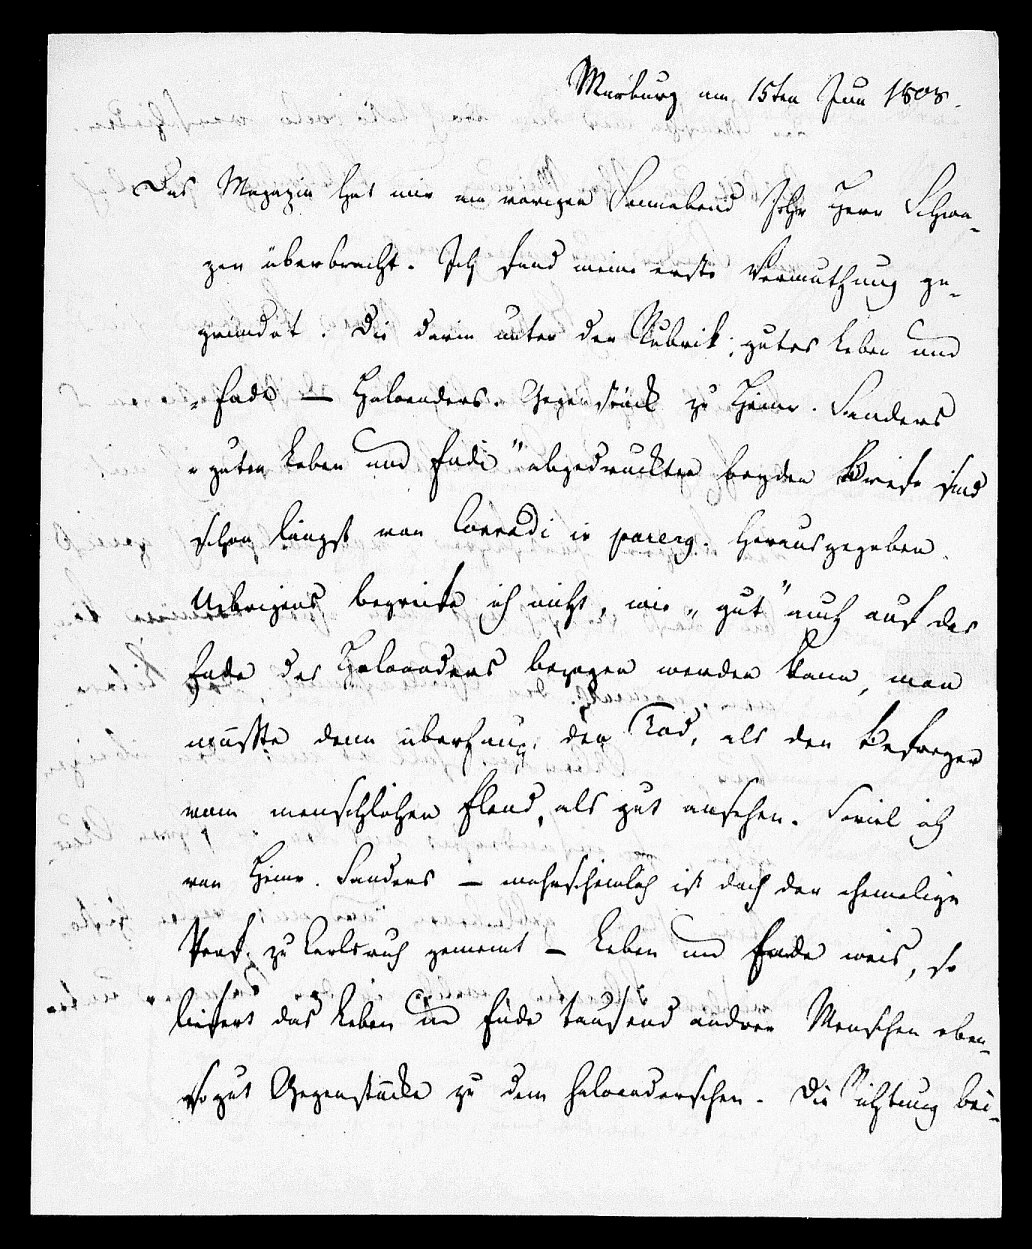 Marburg am 15ten Jun 1808.
Das Magazin hat mir am vorigen Sonnabend Herr Schwa-
zen überbracht. Ich fand meine erste Vermuthung ge-
gründet. Die darin unter der Rubrik: gutes Leben und
„Ende — Haloanders Gegenstück zu Heinr. Sanders
„guten Leben und Ende" abgedruckten beyden Briefe sind
schon längst von Conradi in parerg. herausgegeben.
Uebrigens begreife ich nicht, wie „gut" auch auf das
Ende des Haloanders bezogen werden kann, man
müßte denn überhaupt den Tod, als den Befreyer
vom menschlichen Elend, als gut ansehen. Soviel ich
von Heinr. Sanders — wahrscheinlich ist doch der ehemalige
Prof. zu Carlsruh gemeint — Leben und Ende weis, so
liefert das Leben und Ende tausend andrer Menschen eben-
so gut Gegenstücke zu dem haloanderschen. Die Richtung bei-